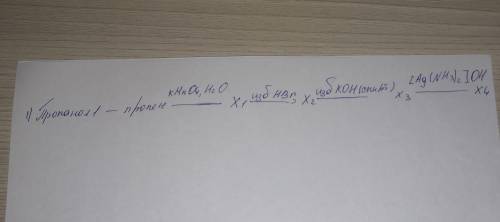 1) Пропанол 1 — пропен —KMnO4, H2O→ X1 —изб HBr→ X2 —изб KOH (спирт)→ X3 —[Ag(NH3)2]OH→ X4